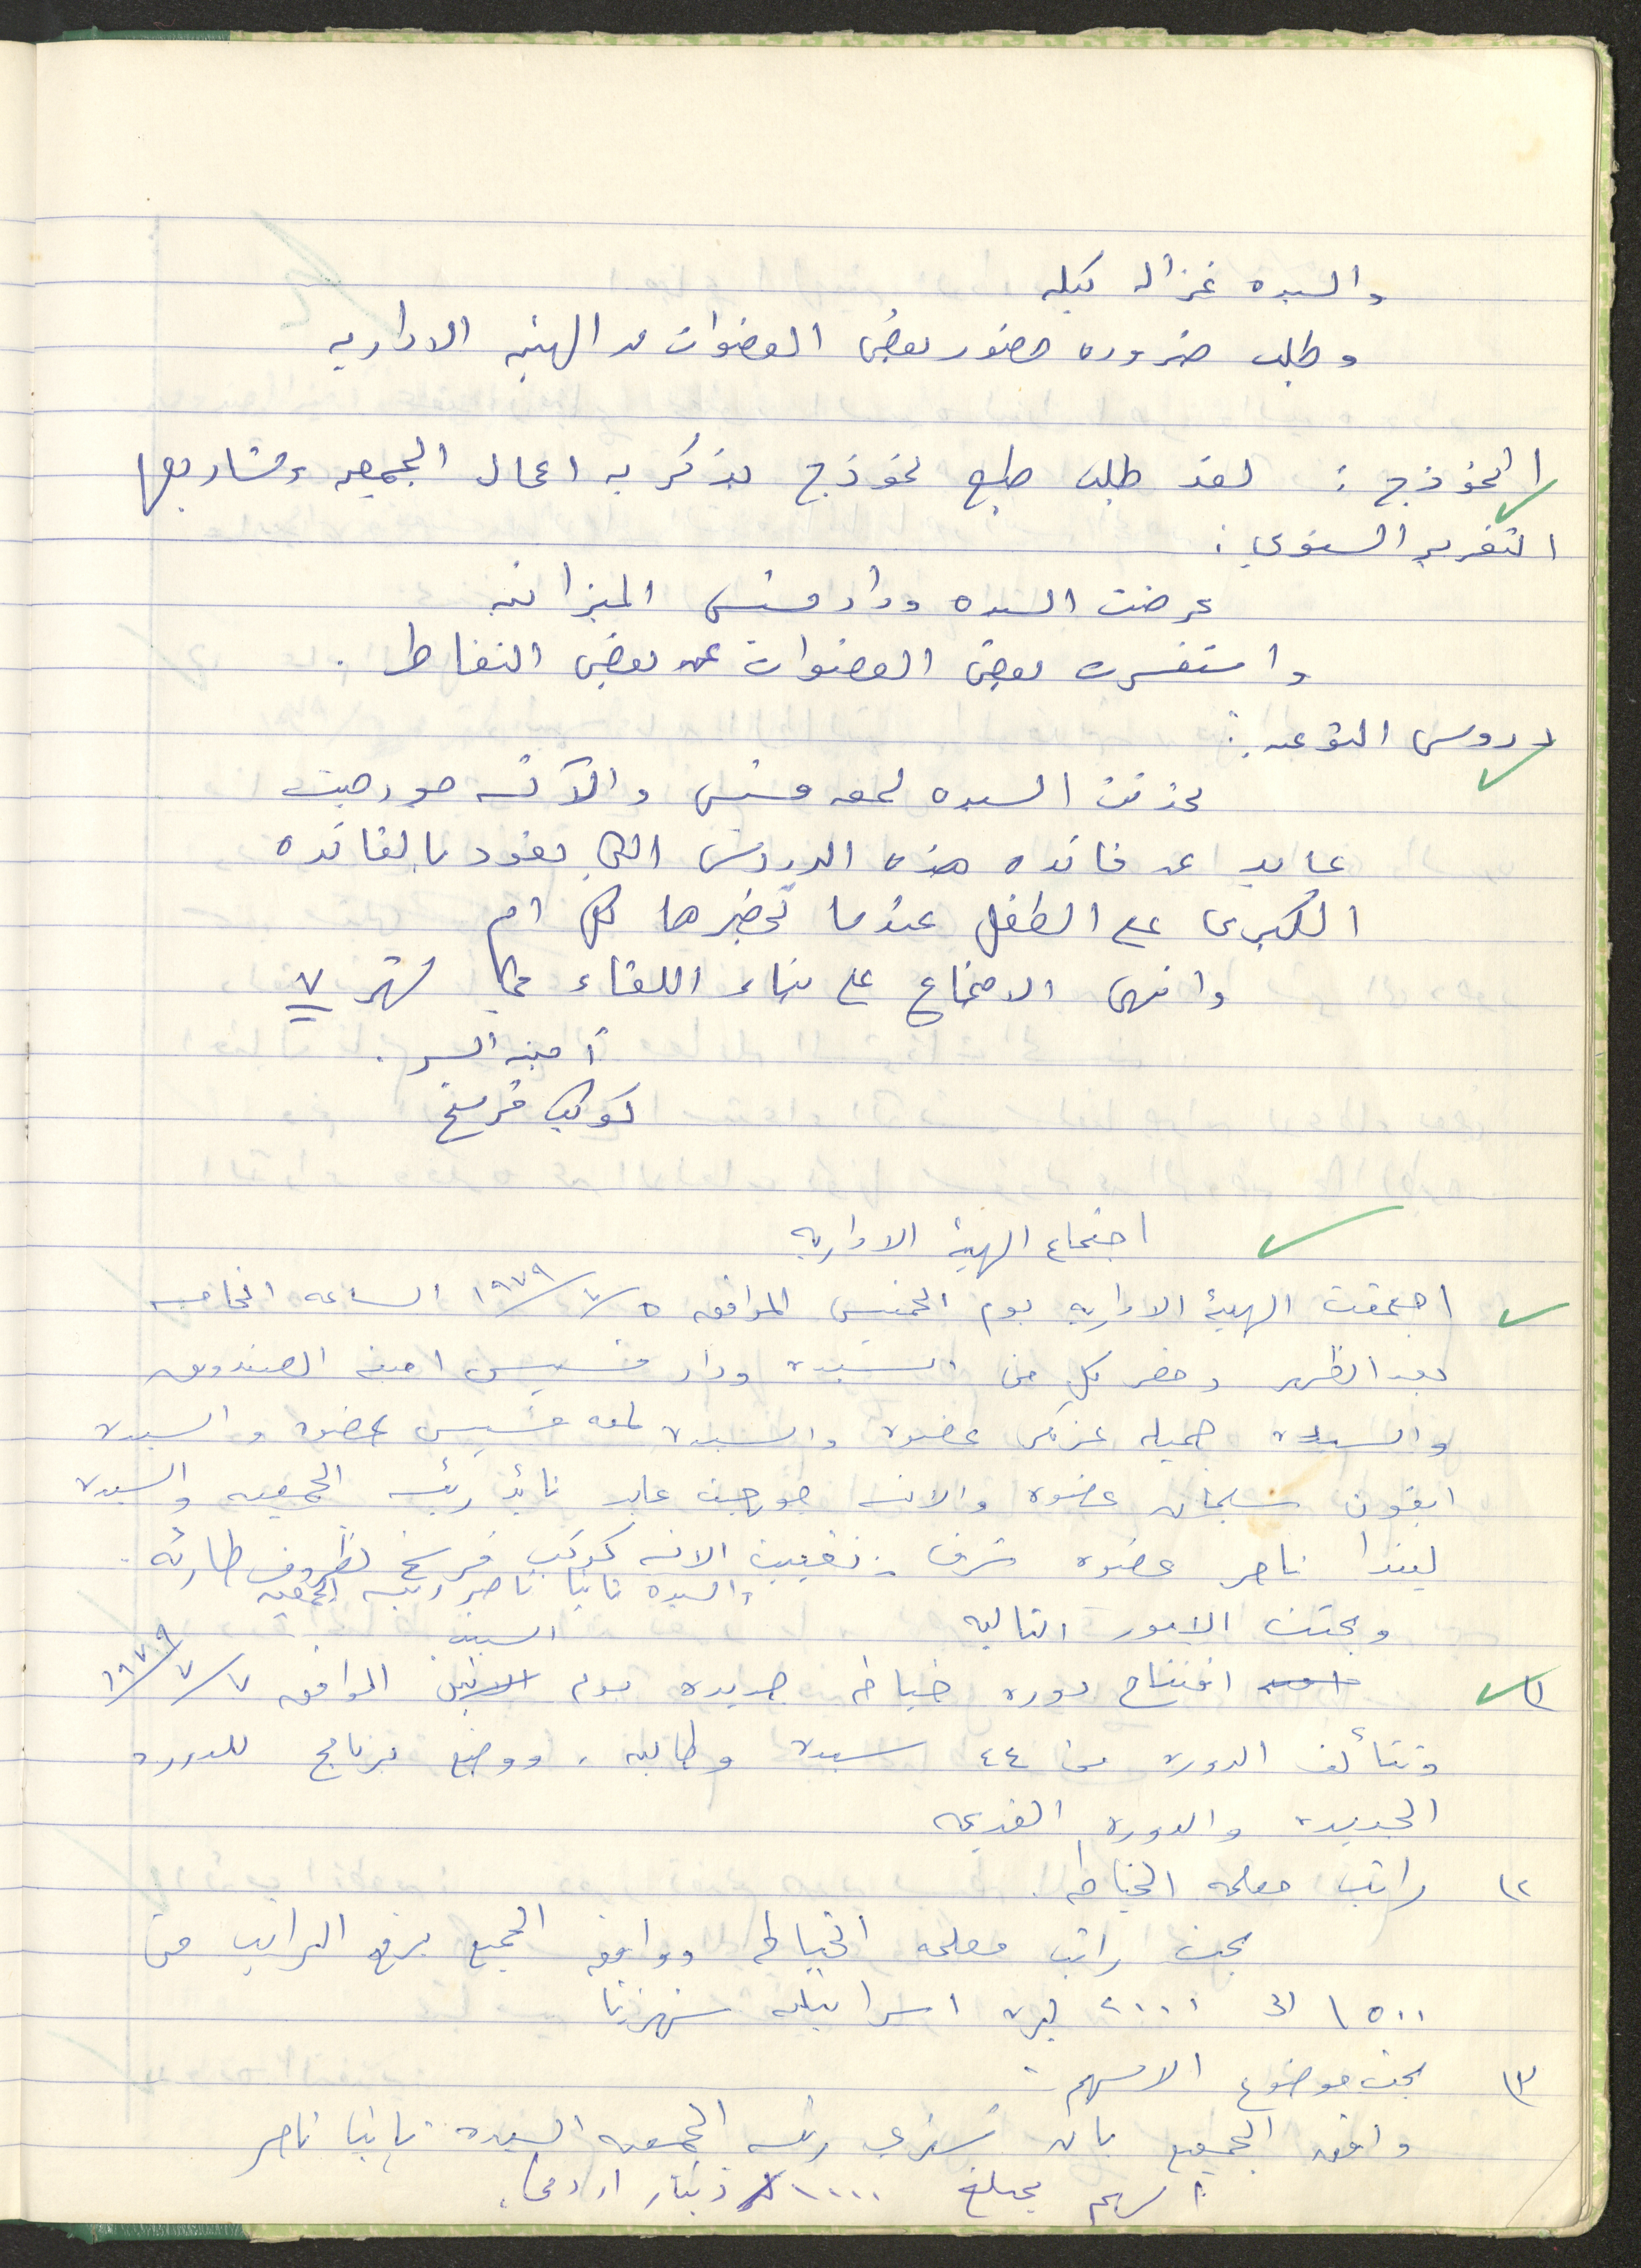 والسيده غزاله كيله
وطلب ضروره حضور بعض العضوات من الهيئه الاداريه
النموذج : لقد طلب طبع نموذج يذكر به اعمال الجمعيه ومشاريعها
التقرير السنوي :
عرضت السيده وداد قسيس الميزانيه
واستفسرت بعض العضوات عن بعض النقاط .
دروس التوعيه :
تحدثت السيده لمعه قسيس والآنسه جورجيت
عابد عن فائده هذه الدروس التي تعود بالفائده
الكبرى على الطفل عندما تحضرها كل ام
وانتهى الاجتماع على اللقاء في شهر ٧
أمينه السر .
كوكب فرسخ
اجتماع الهيئة الاداريه
اجتمعت الهيئة الاداريه يوم الخميس الموافق ٥/٧/١٩٧٩ الساعه الخامسه
بعد الظهر وحضر كل من السيدة وداد قسيس امينه الصندوق
والسيدة جميله عضوة والسيدة لمعه قسيس عضوه والسيدة
ايفون سليمان عضوه والانسه جورجيت عابد نائبه رئيسه الجمعيه والسيدة
ليندا ناصر عضوه شرف . تغيبت الانسه كوكب فرسخ لظروف طارئه .
والسيده تانيا ناصر رئيسه الجمعيه
وبحثت الامور التاليه
١) افتتاح دوره خياطه جديده يوم الاثنين السبت الموافق ٧/٧/١٩٧٩
وتتألف الدورة من ٤٤ سيدة وطالبه . ووضع برنامج للدوره
الجديدة والدورة القديمه
٢) راتب معلمه الخياطه .
بحث راتب معلمه الخياطه ووافق الجميع برفع الراتب من
١٥٠٠ الى ٢٠٠٠ ليرة اسرائيليه شهريا
٣) بحث موضوع الاسهم .
وافق الجميع بان تشتري رئيسه الجمعيه السيده تانيا ناصر
اسهم بمبلغ ١٠٠٠ دينار اردني .